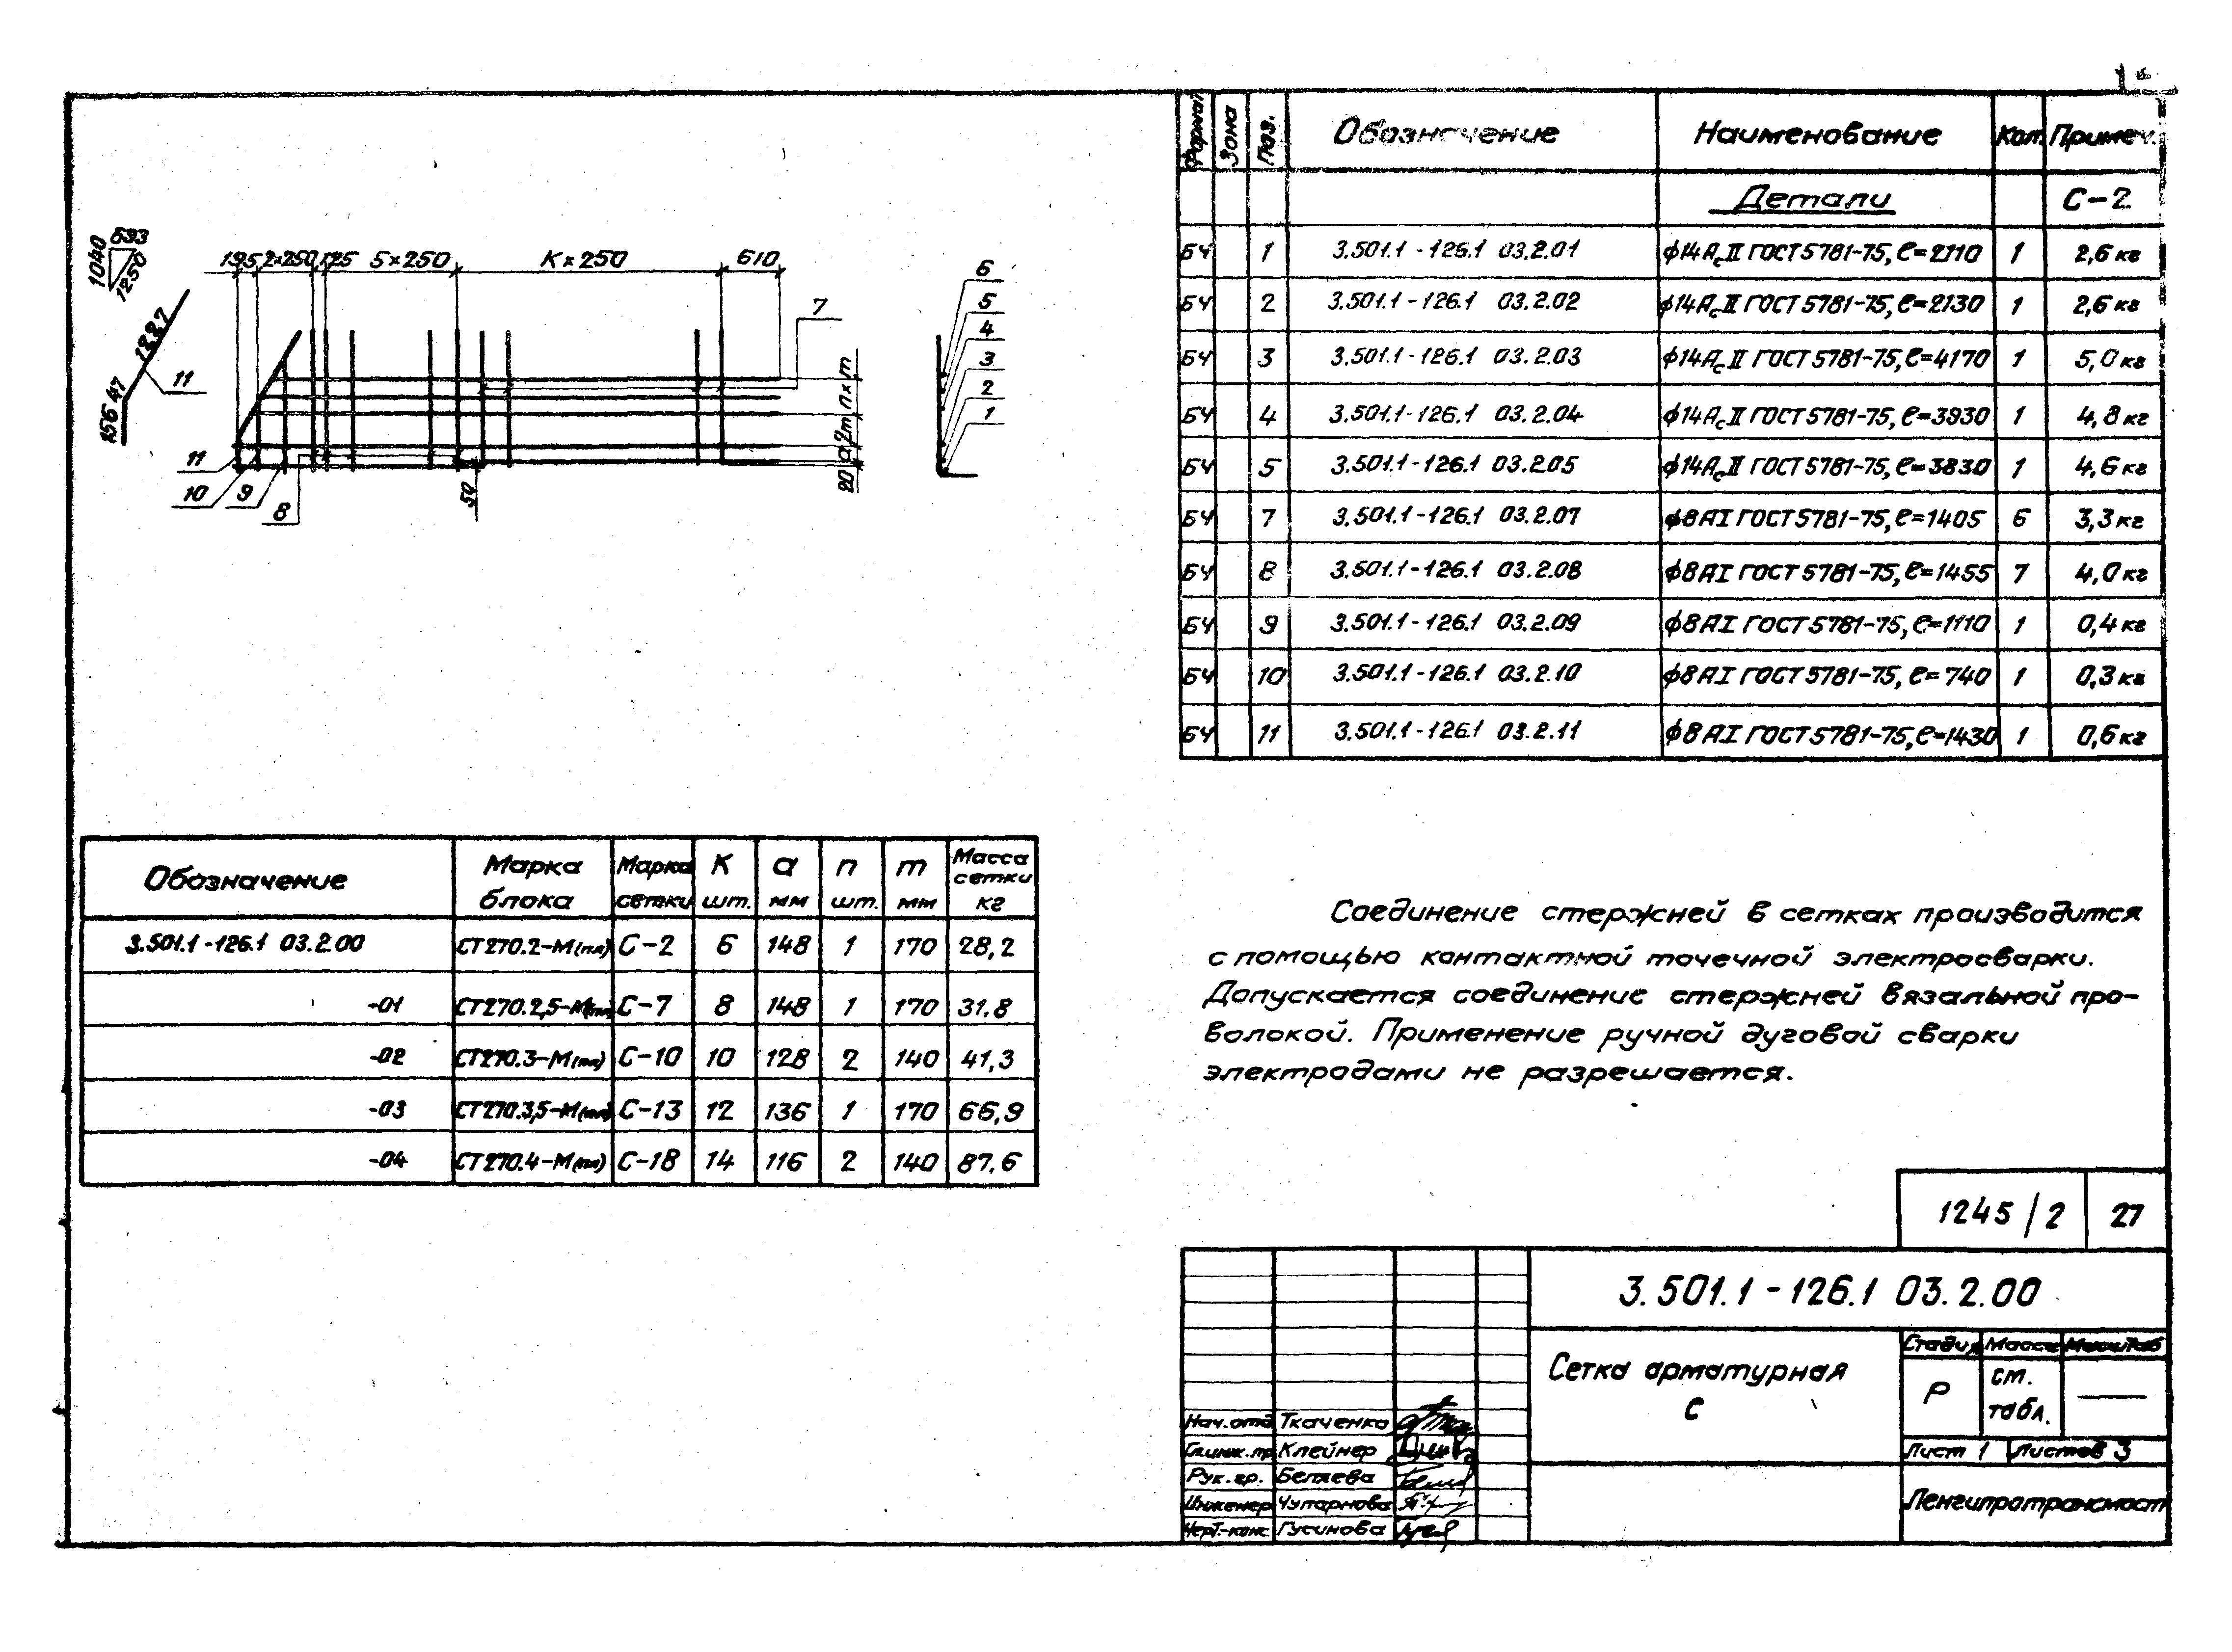 693
1040
1250
195 2×250 125 5×250 К×250 610
1287
156 47
11
7
6
5
4
3
2
1
n×m
2m
a
20
50
11
10
9
8
Формат Зона Поз. Обозначение Наименование Кол. Примеч.
Детали С-2
БЧ 1 3.501.1-126.1 03.2.01 ф14АсII ГОСТ 5781-75, ℓ=2110 1 2,6 кг
БЧ 2 3.501.1-126.1 03.2.02 ф14АсII ГОСТ 5781-75, ℓ=2130 1 2,6 кг
БЧ 3 3.501.1-126.1 03.2.03 ф14АсII ГОСТ 5781-75, ℓ=4170 1 5,0 кг
БЧ 4 3.501.1-126.1 03.2.04 ф14АсII ГОСТ 5781-75, ℓ=3930 1 4,8 кг
БЧ 5 3.501.1-126.1 03.2.05 ф14АсII ГОСТ 5781-75, ℓ=3830 1 4,6 кг
БЧ 7 3.501.1-126.1 03.2.07 ф8АI ГОСТ 5781-75, ℓ=1405 6 3,3 кг
БЧ 8 3.501.1-126.1 03.2.08 ф8АI ГОСТ 5781-75, ℓ=1455 7 4,0 кг
БЧ 9 3.501.1-126.1 03.2.09 ф8АI ГОСТ 5781-75, ℓ=1110 1 0,4 кг
БЧ 10 3.501.1-126.1 03.2.10 ф8АI ГОСТ 5781-75, ℓ=740 1 0,3 кг
БЧ 11 3.501.1-126.1 03.2.11 ф8АI ГОСТ 5781-75, ℓ=1430 1 0,6 кг
Обозначение Марка блока Марка сетки К шт. a мм n шт. m мм Масса сетки кг
3.501.1-126.1 03.2.00 СТ270.2-М(пл) С-2 6 148 1 170 28,2
-01 СТ270.2,5-М(пл) С-7 8 148 1 170 31,8
-02 СТ270.3-М(пл) С-10 10 128 2 140 41,3
-03 СТ270.3,5-М(пл) С-13 12 136 1 170 66,9
-04 СТ270.4-М(пл) С-18 14 116 2 140 87,6
Соединение стержней в сетках производится
с помощью контактной точечной электросварки.
Допускается соединение стержней вязальной про-
волокой. Применение ручной дуговой сварки
электродами не разрешается.
1245/2 27
3.501.1-126.1 03.2.00
Сетка арматурная
С
Стадия Масса Масштаб
Р см. табл. —
Лист 1 Листов 3
Ленгипротрансмост
Нач. отд Ткаченко
Гл.инж.пр Клейнер
Рук. гр. Беляева
Инженер Чупарнова
Черт.-конс. Гусинова